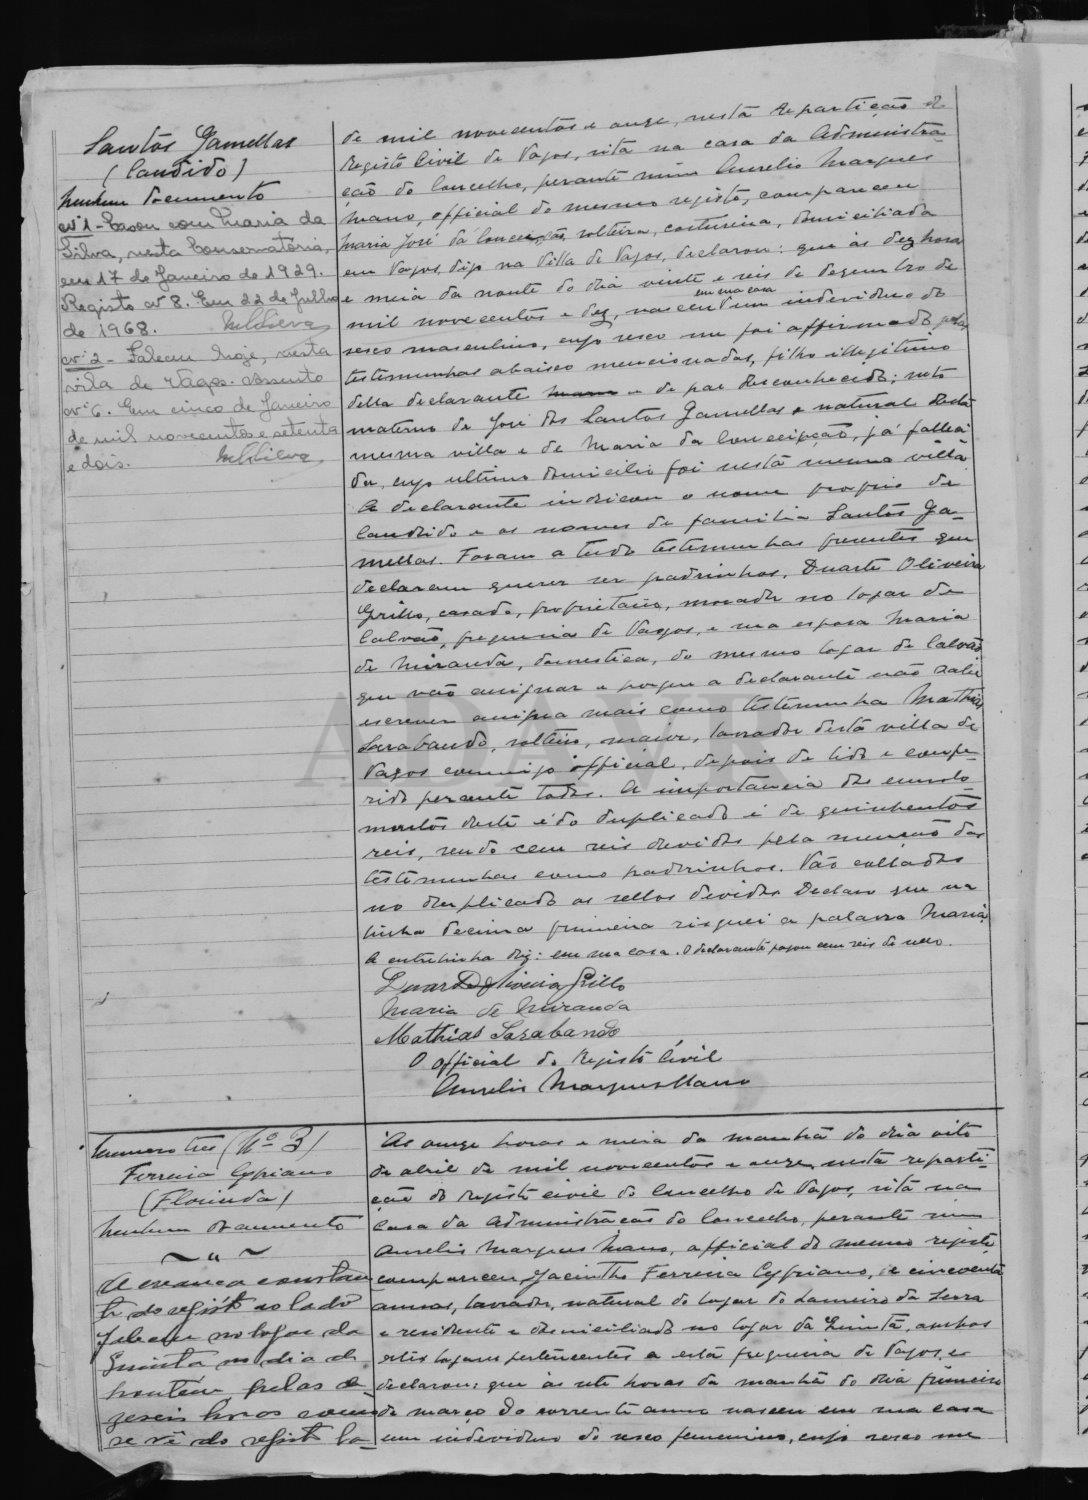 Santos Gamellas
(Candido)
Nenhum documento
nº 1 - Casou com Maria da
Silva, nesta Conservatória,
em 17 de Janeiro de 1929.
Registo nº 8. Em 22 de Julho
de 1968. MSilva
nº 2 - Faleceu hoje, nesta
vila de Vagos. Assento
nº 6. Em cinco de Janeiro
de mil novecentos e setenta
e dois. MSilva
de mil novecentos e onze, nesta Repartição de
Registo Civil de Vagos, sita na casa da Administra-
ção do Concelho, perante mim Aurelio Marques
Mano, official do mesmo registo, compareceu
Maria José da Conceição, solteira, costureira, domiciliada
em Vagos, digo na Villa de Vagos, declarou: que ás dez horas
e meia da noute do dia vinte e seis de dezembro de
em sua casa
mil novecentos e dez, nasceu um individuo do
sexo masculino, cujo sexo me foi affirmado pelas
testemunhas abaixo mencionadas, filho illegitimo
della declarante Maria e de pae desconhecido; neto
materno de José dos Santos Gamellas e natural desta
mesma villa e de Maria da Conceipção, já falleci-
da, cujo ultimo domicilio foi nesta mesma villa.
A declarante indicou o nome proprio de
Candido e os nomes de familia Santos Ga-
mellas. Foram a tudo testemunhas presentes que
declaram querer ser padrinhos, Duarte Oliveira
Grillo, casado, proprietario, morador no logar de
Calvão, freguesia de Vagos, e sua esposa Maria
de Miranda, domestica, do mesmo logar de Calvão
que vão assignar e porque a declarante não sabe
escrever assigna mais como testemunha Mathias
Sarabando, solteiro, maior, lavrador desta villa de
Vagos commigo official, depois de lido e confe-
rido perante todos. A importancia dos emolu-
mentos deste e do duplicado é de quinhentos
reis, sendo cem reis devidos pela menção das
testemunhas como padrinhos. Vão collados
no duplicado os sellos devidos. Declaro que na
linha decima primeira risquei a palavra Maria.
A entrelinha diz: em sua casa. O declarante pagou cem reis de sello.
Duarte d'Oliveira Grillo
Maria de Miranda
Mathias Sarabando
O official do Registo Civil
Aurelio Marques Mano
Numero tres (Nº 3)
Ferreira Cypriano
(Florinda)
Nenhum documento
~ " ~
A creança constan-
te do registo ao lado
faleceu no logar da
Quinta no dia de
hontem pelas de-
zeseis horas como
se vê do registo
Ás onze horas e meia da manhã do dia oito
de abril de mil novecentos e onze, nesta reparti-
ção do registo civil do Concelho de Vagos, sita na
Casa da Administração do Concelho, perante mim
Aurelio Marques Mano, official do mesmo registo,
compareceu Jacintho Ferreira Cypriano, de cincoenta
annos, lavrador, natural do logar do Lameiro da Serra
e residente e domiciliado no logar da Quinta, ambos
estes logares pertencentes a esta freguesia de Vagos, e
declarou: que ás sete horas da manhã do dia primeiro
de março do corrente anno nasceu em sua casa
um individuo do sexo femenino, cujo sexo me
ADAVR